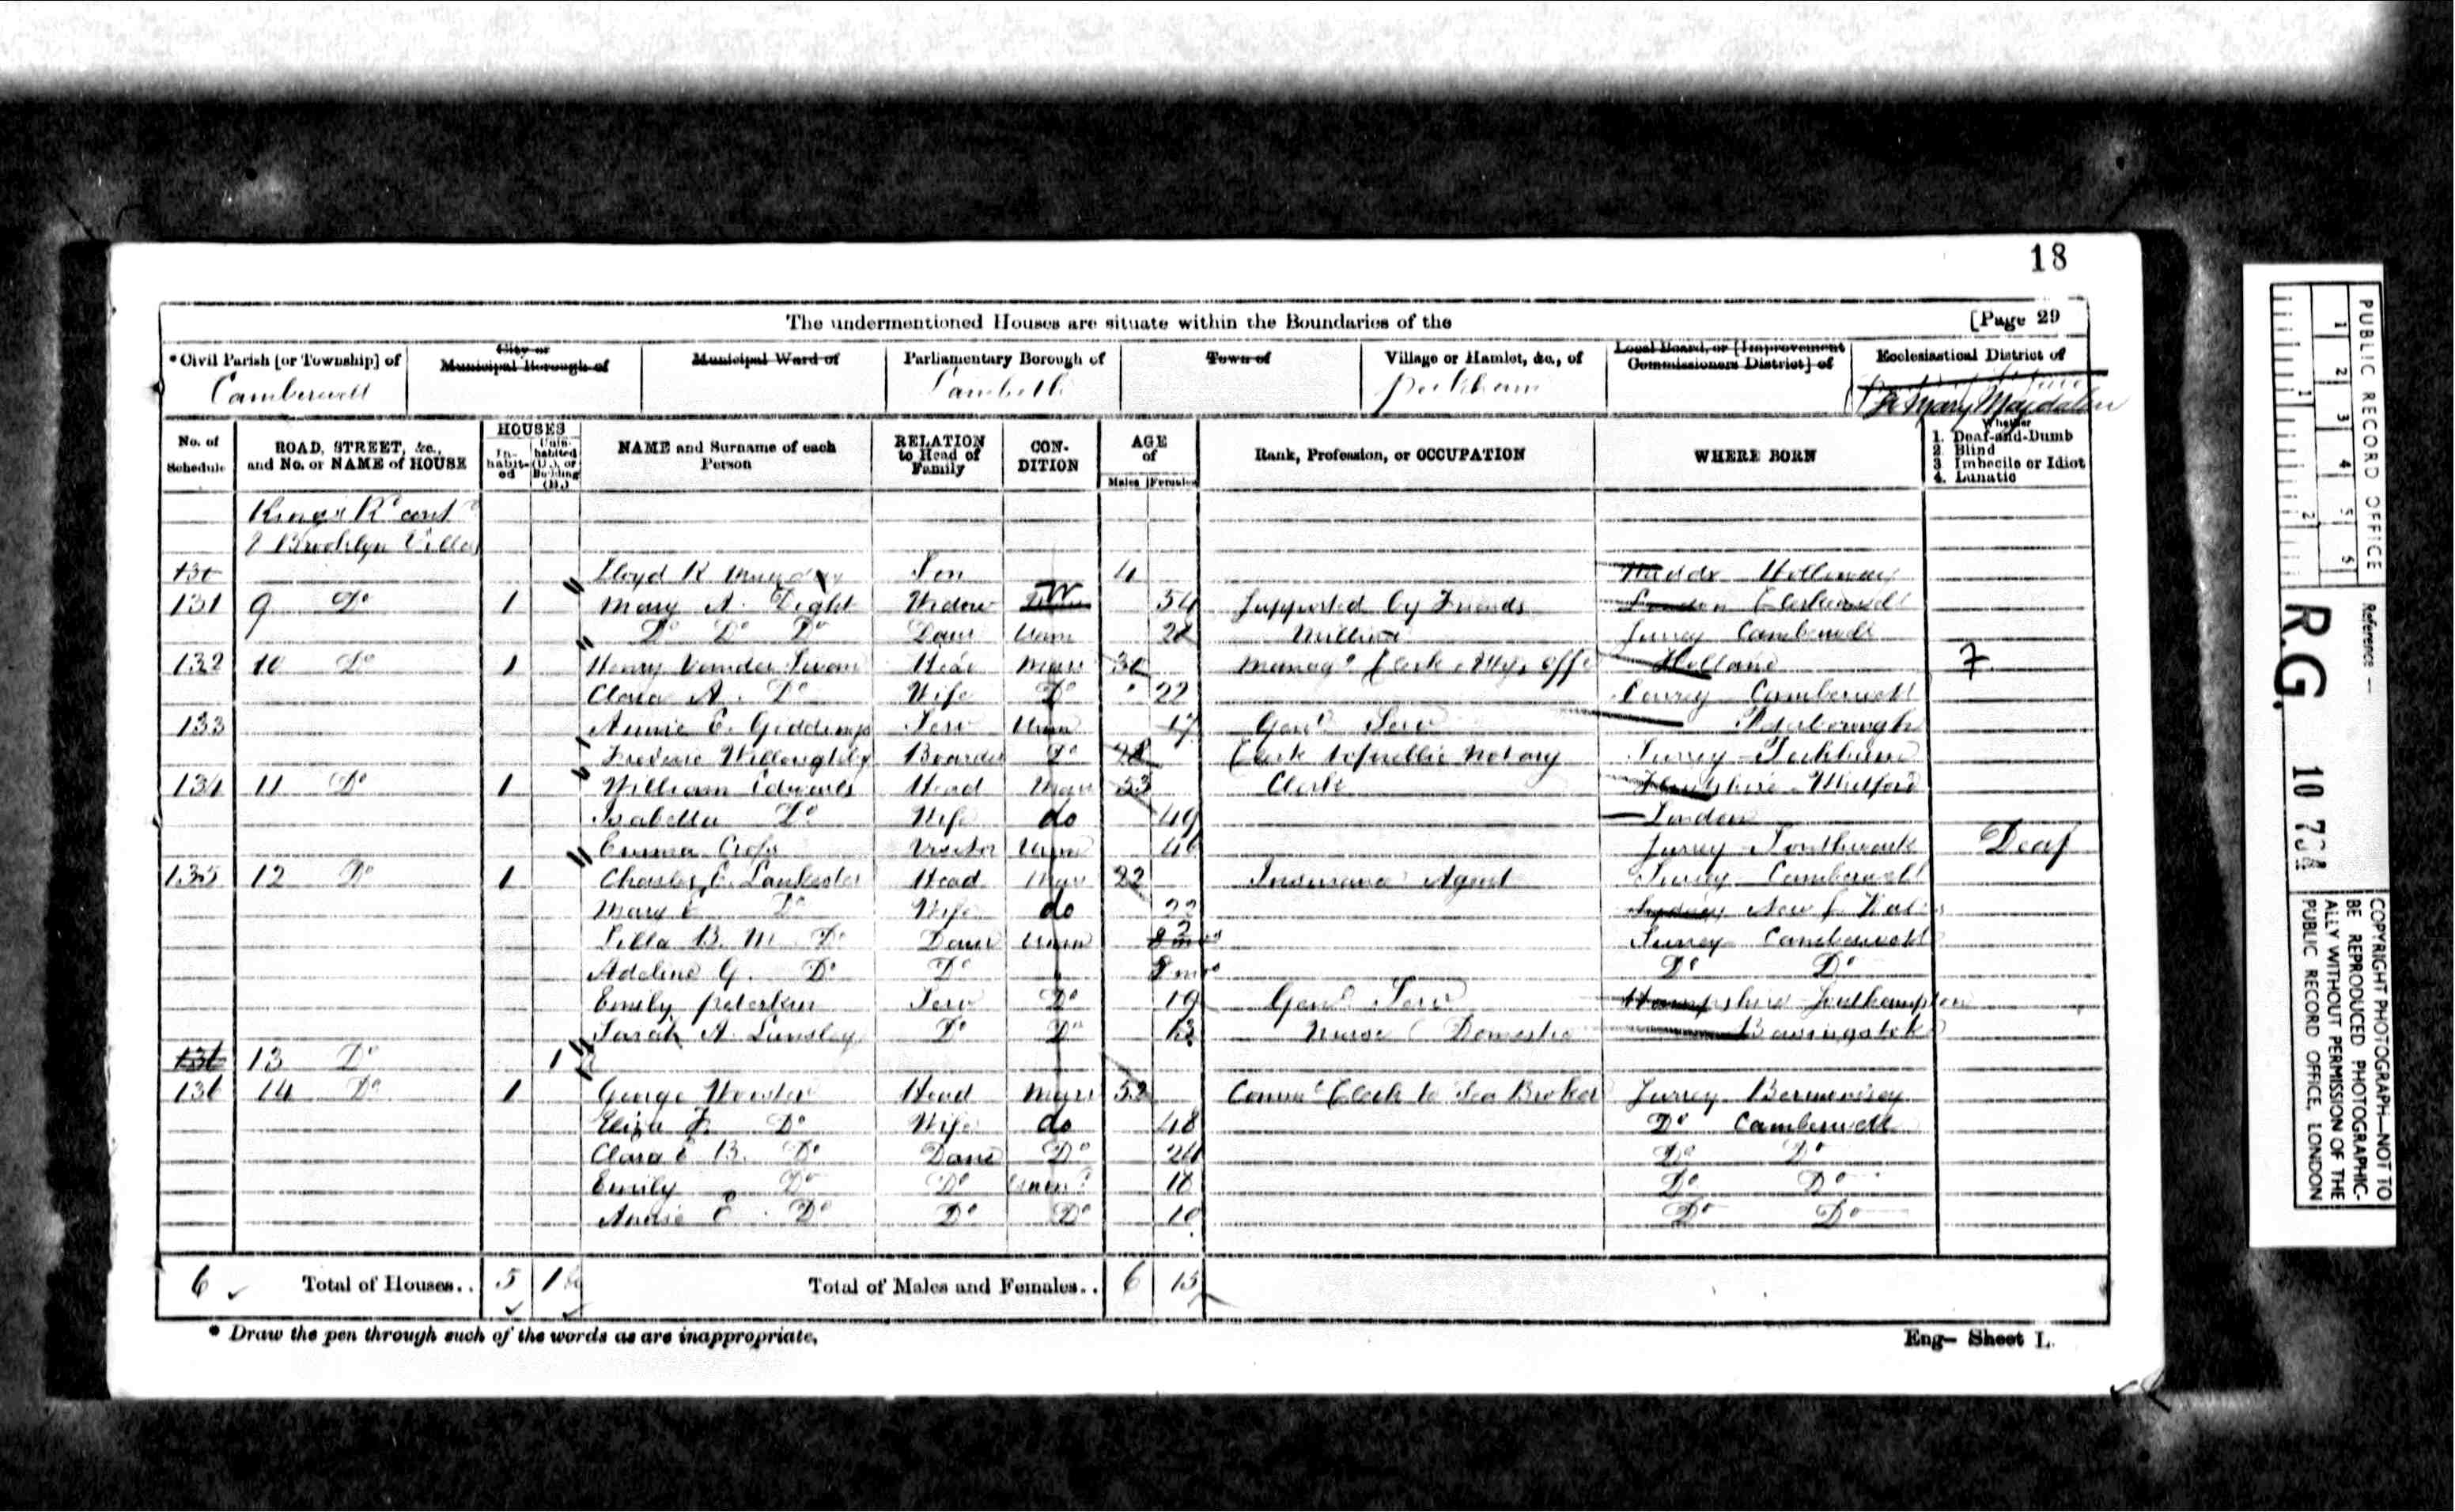 18
The undermentioned Houses are situate within the Boundaries of the [Page 29
*Civil Parish [or Township] of City or Municipal Borough of Municipal Ward of Parliamentary Borough of Town of Village or Hamlet, &c., of Local Board, or [Improvement Commissioners District] of Ecclesiastical District of
Camberwell Lambeth Peckham St Mary Magdalen
No. of Schedule ROAD, STREET, &c., and No. or NAME of HOUSE HOUSES Inhabited Uninhabited (U.), or Building (B.) NAME and Surname of each Person RELATION to Head of Family CONDITION AGE of Males Females Rank, Profession, or OCCUPATION WHERE BORN Whether 1. Deaf-and-Dumb 2. Blind 3. Imbecile or Idiot 4. Lunatic
Kings Rd cont
Brooklyn Villas
Lloyd R Son 4 Middx Holloway
131 9 Do 1 Mary A. Dight Widow W 54 Supported by Friends London Clerkenwell
Do Do Do Daur Unm Milliner Surrey Camberwell
132 10 Do 1 Henry Vander Head Marr Manag Clerk Offi Holland 7
Clara A. Do Wife Do 22 Surrey Camberwell
133 Annie E. Giddings Serv Unm 17 Genl Serv
Willoughby Boarder Do Clerk to public Notary Surrey Peckham
134 11 Do 1 William Edwards Head Marr 53 Clerk
Isabella Do Wife do 49 London
Emma Cross Visitor Unm 46 Surrey Southwark Deaf
135 12 Do 1 Charles E. Lankester Head Marr 22 Insurance Agent Surrey Camberwell
Mary E Do Wife do 22 Sydney New S. Wales
Lilla B. M. Do Daur Unm 2 Surrey Camberwell
Adeline G. Do Do 8 mos Do Do
Emily Serv Do 19 Genl Serv Hampshire Southampton
Sarah A. Do Do 13 Nurse (Domestic Basingstoke
136 13 Do 1
136 14 Do 1 George Head Marr 52 Comml Clerk to Tea Broker Surrey Bermondsey
Eliza F. Do Wife do 48 Do Camberwell
Clara E B. Do Daur Do 24 Do Do
Emily Do Do Unm 18 Do Do
Annie E Do Do Do 10 Do Do
6 Total of Houses.. 5 1 Total of Males and Females.. 6 15
* Draw the pen through such of the words as are inappropriate.
Eng— Sheet L.
PUBLIC RECORD OFFICE
1 2 3 4 5 6
1 2
Reference —
R.G. 10
COPYRIGHT PHOTOGRAPH—NOT TO
BE REPRODUCED PHOTOGRAPHIC-
ALLY WITHOUT PERMISSION OF THE
PUBLIC RECORD OFFICE, LONDON